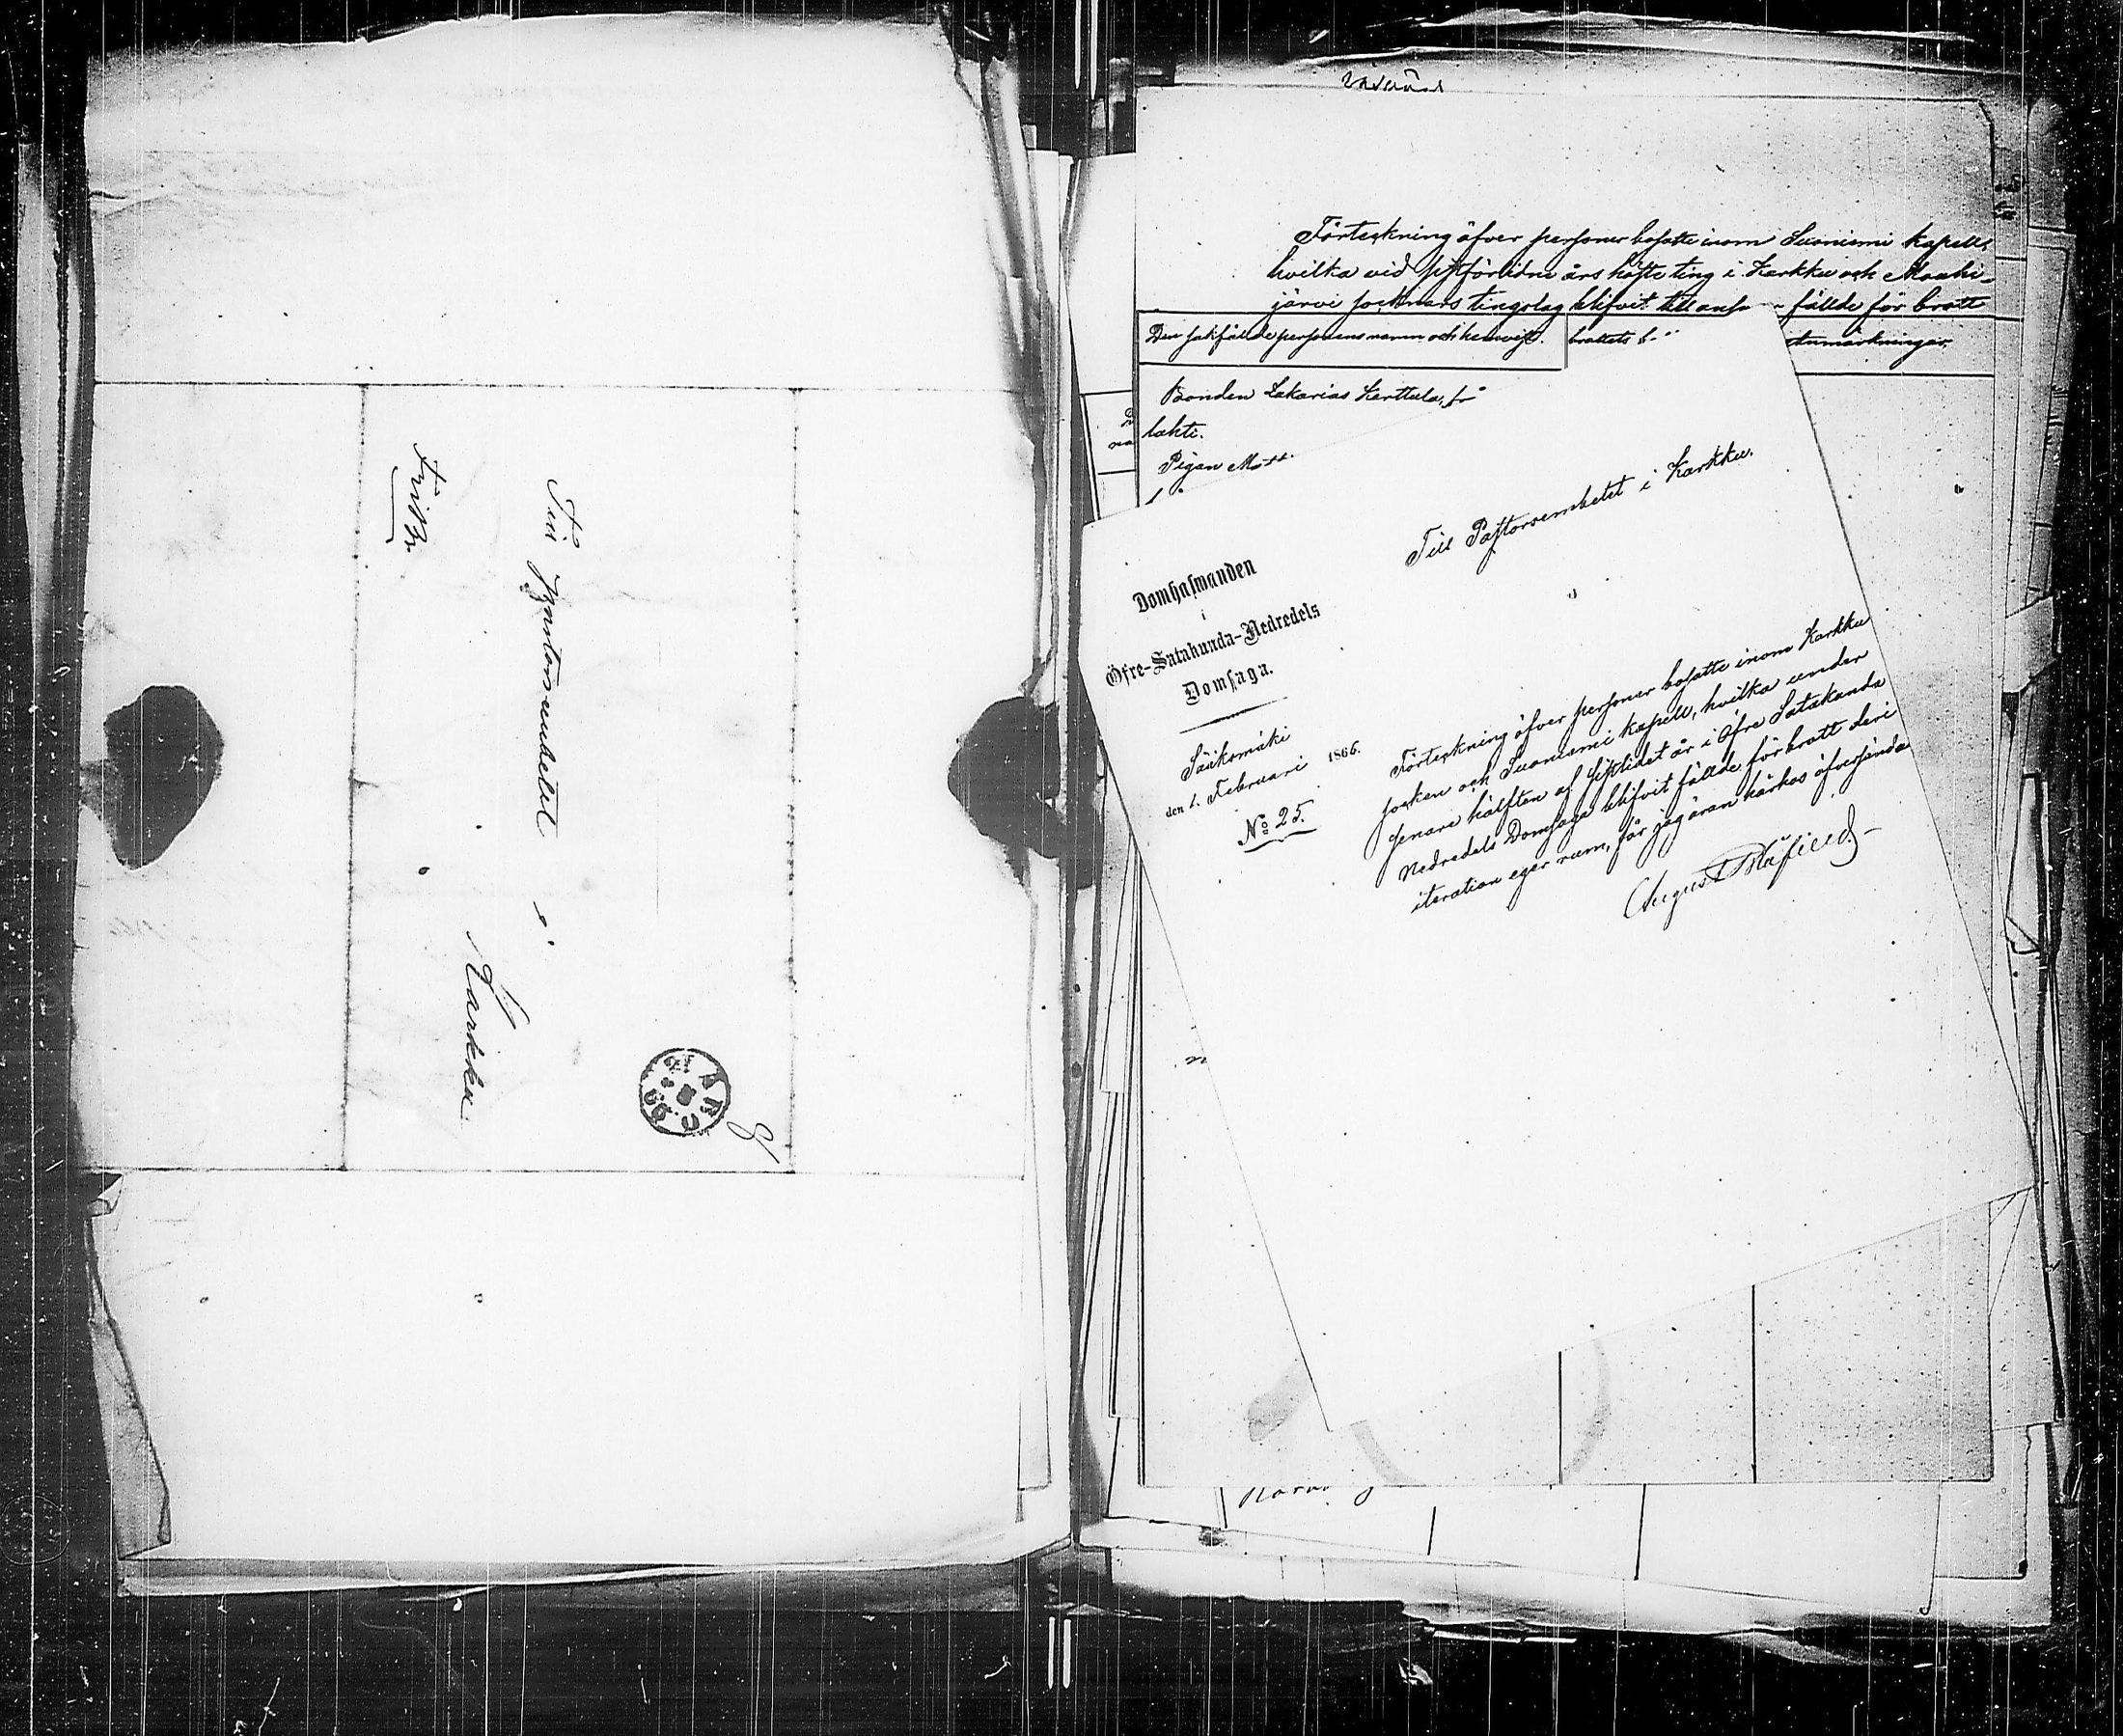 Fribr.
Till Pastorsembetet
i
Karkku.
ÅBO
Förteckning öfver personer bosatte inom Suoniemi kapell,
hvilka vid sistförlidne års höste ting i Karkku och Mouhi-
järvi socknars tingslag blifvit till ansv fällde för brott
Den sakfällde personens namn och hemvist.
brottets b
Anmärkningar.
Bonden Zakarias Kerttula, fr
lahti.
Pigan
Till Pastorsembetet i Karkku.
Domhafwanden
i
Öfre-Satakunda-Nedredels
Domsaga.
Sääksmäki
den 1. Februari 1866.
No 25.
Förteckning öfver personer bosatte inom Karkku
socken och Suoniemi kapell, hvilka under
senare hälften af sistlidet år i Öfre Satakunda
Nedredels Domsaga blifvit fällde för brott deri
iteration eger rum, får jag äran härhos öfversända
August